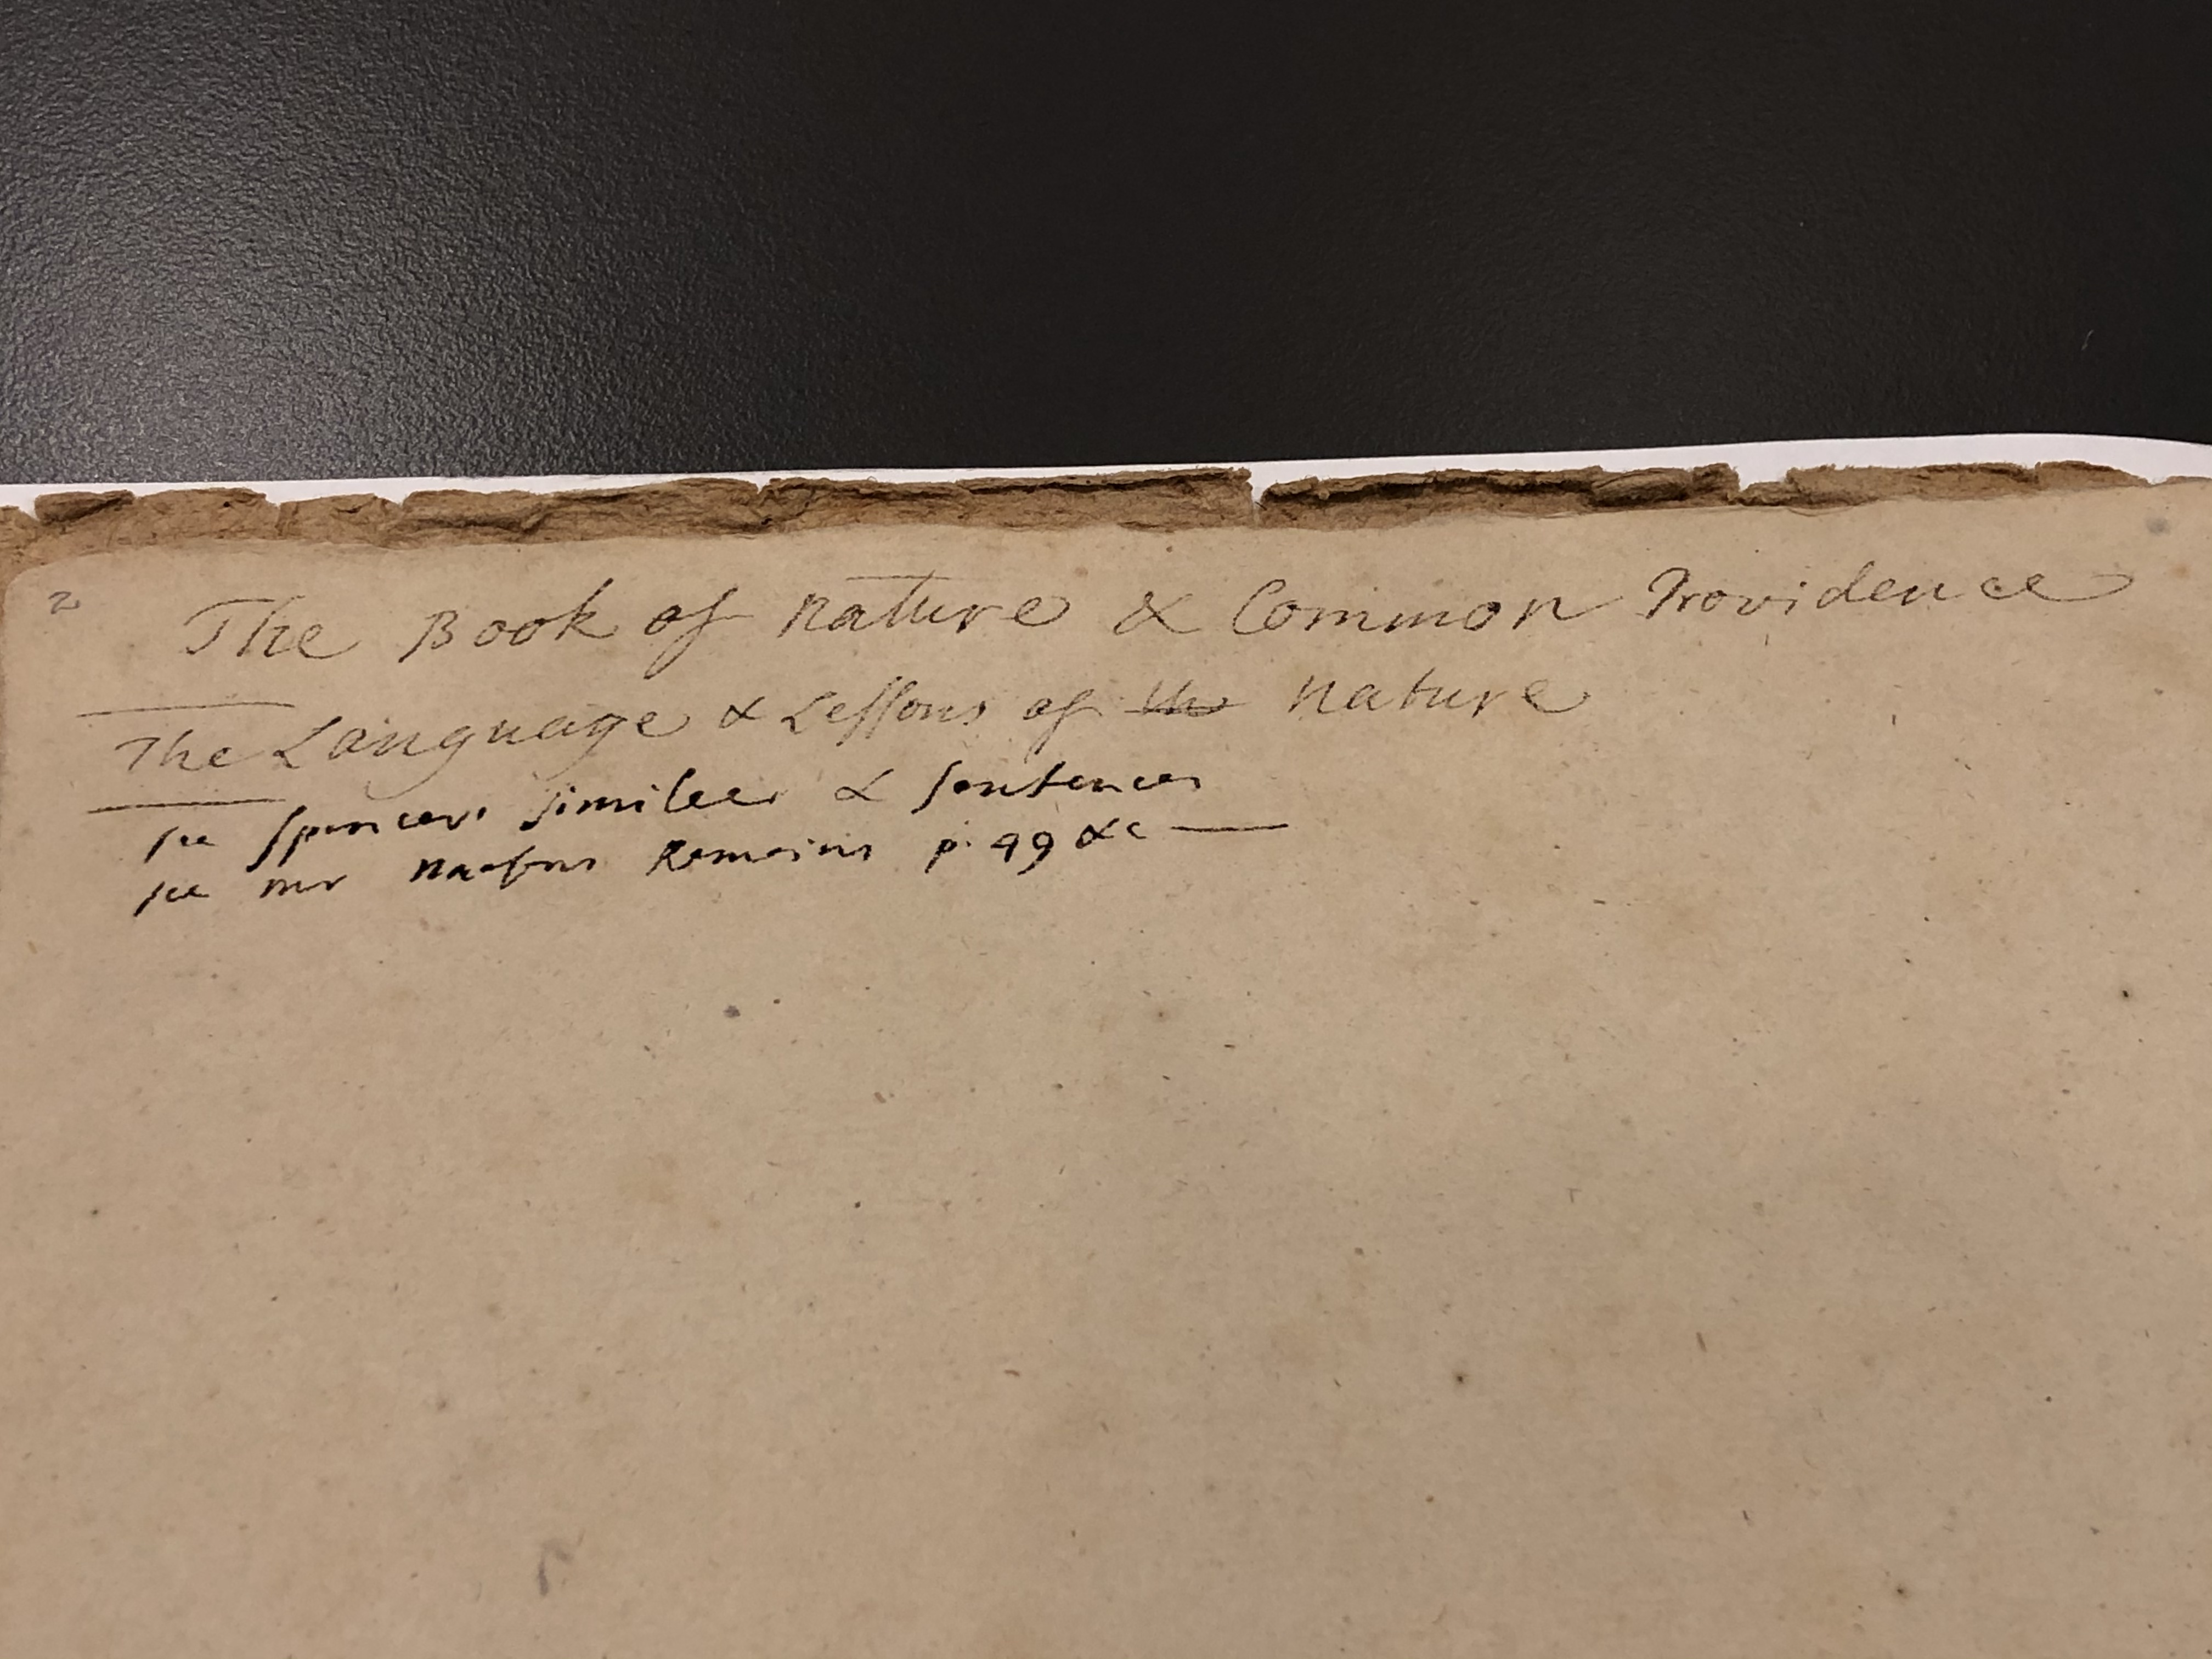 2 The Book of Nature & Common Providence
The Language & Lessons of the Nature
see Spencers Similees & Sentences
see mr Remains p. 99 &c